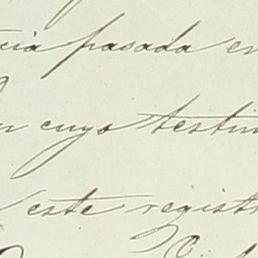 cia pasada en
en cuyo testim
este registr